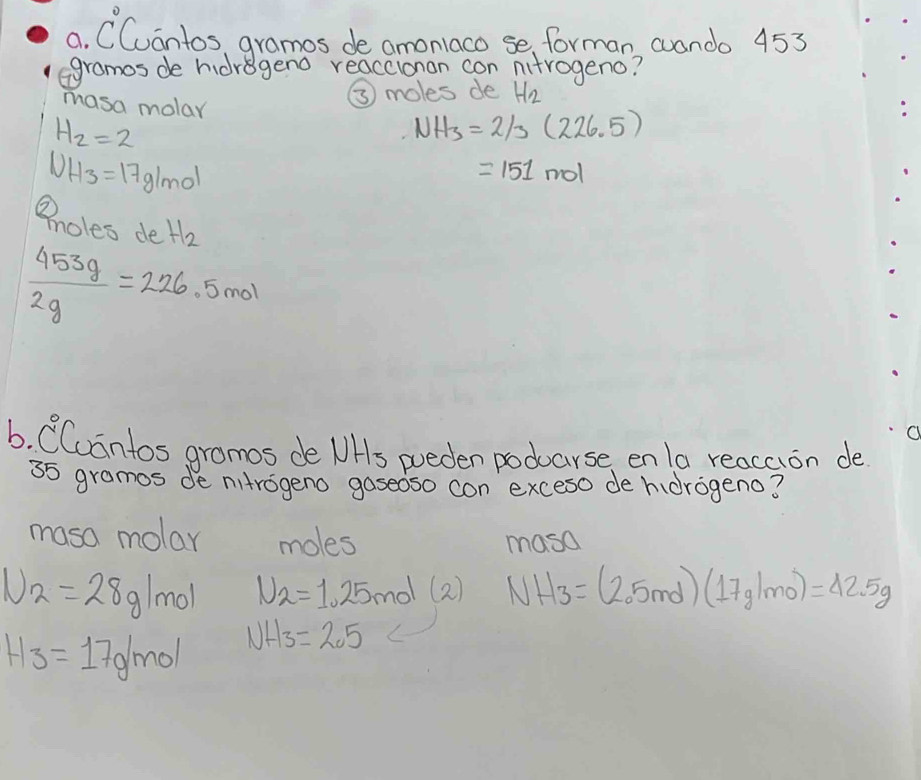 a. ¿Cuántos gramos de amoniaco se forman cuando 453
gramos de hidrógeno reaccionan con nitrogeno?
① masa molar
H2 = 2
NH3 = 17g/mol
② moles de H2
453g / 2g = 226.5 mol
③ moles de H2
NH3 = 2/3 (226.5)
= 151 mol
b. ¿Cuántos gramos de NH3 pueden poducirse en la reacción de
35 gramos de nitrógeno gaseoso con exceso de hidrógeno?
masa molar
N2 = 28g/mol
H3 = 17g/mol
moles
N2 = 1.25mol (2)
NH3 = 2.5 ←
masa
NH3 = (2.5mol) (17g/mol) = 42.5g